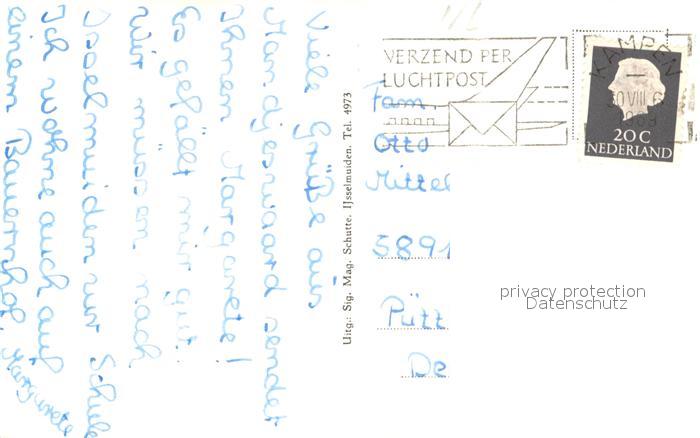 Viele Grüße aus
Mandjeswaard sendet
Ihnen Margarete!
Es gefällt mir gut.
Wir müssen nach
Isselmuiden zur Schule
Ich wohne auch auf
einem Bauernhof.
Uitg.: Sig. Mag. Schutte. IJsselmuiden. Tel. 4973
VERZEND PER
LUCHTPOST
KAMPEN
20 C
NEDERLAND
Fam.
Otto
Mittel
5891
Pütt
De
privacy protection
Datenschutz